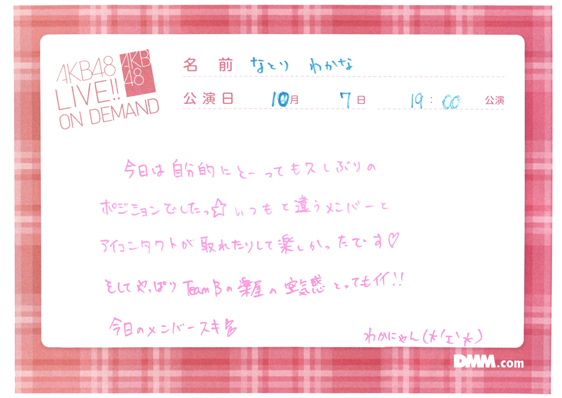 AKB48
LIVE!!
ON DEMAND
AKB
48
名前 なとり わかな
公演日 10月 7日 19:00 公演
今日は自分的にとーってもスしぶりの
ポジションでしたっ☆いつもと違うメンバーと
アイコンタクトが取れたりして楽しかったです♡
そしてやっぱりTeamBの楽屋の空気感とってもイイ!!
今日のメンバースキ
わかにゃん(*'ェ'*)
DMM.com